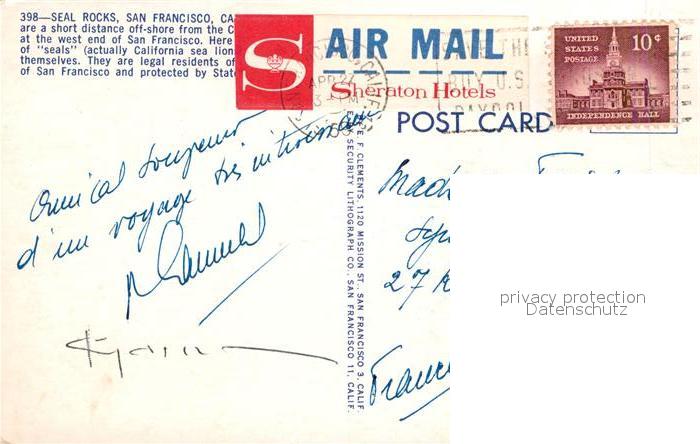 398—SEAL ROCKS, SAN FRANCISCO, CA
are a short distance off-shore from the C
at the west end of San Francisco. Here
of "seals" (actually California sea lion
themselves. They are legal residents of
of San Francisco and protected by State
S
AIR MAIL
Sheraton Hotels
APR 24
PM
BUY U.S.
UNITED STATES POSTAGE
10¢
INDEPENDENCE HALL
POST CARD
Amical souvenir
d'un voyage très intéressant
F. CLEMENTS, 1120 MISSION ST., SAN FRANCISCO 3, CALIF.
SECURITY LITHOGRAPH CO., SAN FRANCISCO 11, CALIF.
Mad
27 R
Franc
privacy protection
Datenschutz